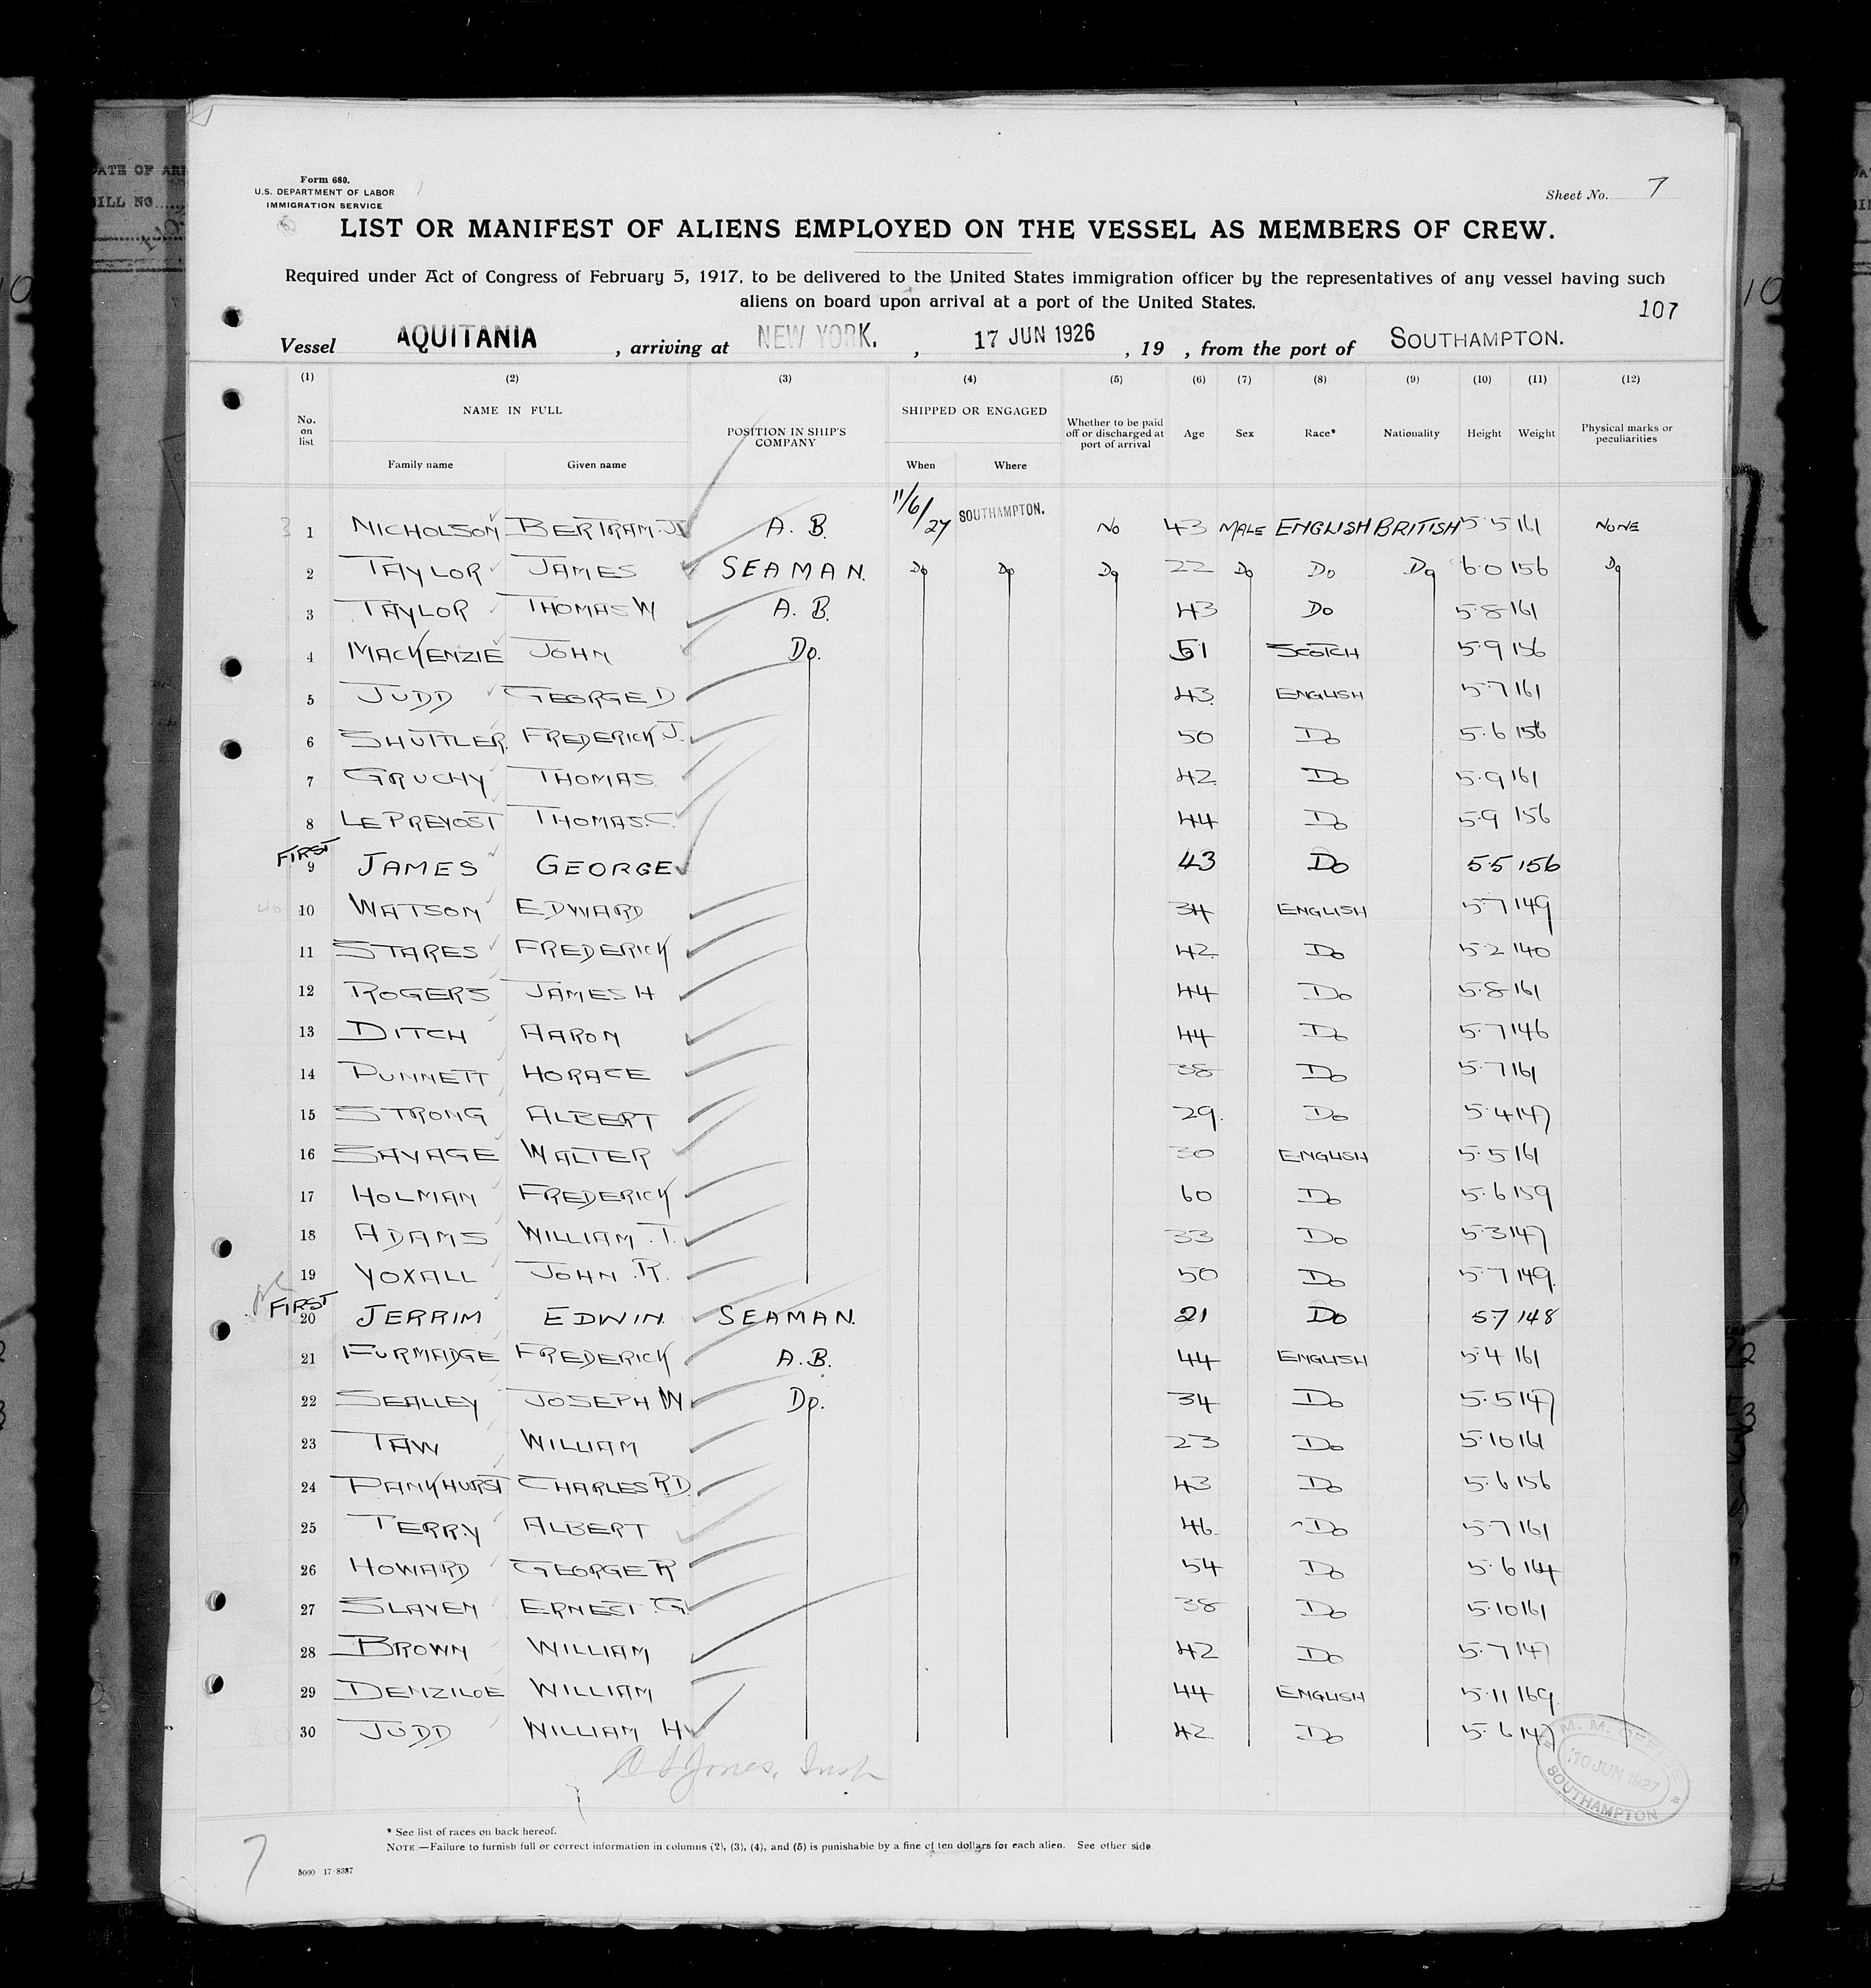 Form 680.
U.S. DEPARTMENT OF LABOR
IMMIGRATION SERVICE
Sheet No. 7
LIST OR MANIFEST OF ALIENS EMPLOYED ON THE VESSEL AS MEMBERS OF CREW.
Required under Act of Congress of February 5, 1917, to be delivered to the United States immigration officer by the representatives of any vessel having such
aliens on board upon arrival at a port of the United States.
107
Vessel AQUITANIA , arriving at NEW YORK. , 17 JUN 1926 , 19 , from the port of SOUTHAMPTON.
(1) (2) (3) (4) (5) (6) (7) (8) (9) (10) (11) (12)
No. on list NAME IN FULL Family name Given name POSITION IN SHIP'S COMPANY SHIPPED OR ENGAGED When Where Whether to be paid off or discharged at port of arrival Age Sex Race* Nationality Height Weight Physical marks or peculiarities
1 NICHOLSON BERTRAM.J A. B. 11/6/27 SOUTHAMPTON. NO 43 MALE ENGLISH BRITISH 5·5 161 NONE
2 TAYLOR JAMES SEAMAN. Do Do Do 22 Do Do Do 6·0 156 Do
3 TAYLOR THOMAS W A. B. 43 Do 5·8 161
4 MACKENZIE JOHN Do. 51 SCOTCH 5·9 156
5 JUDD GEORGE D 43 ENGLISH 5·7 161
6 SHUTTLER FREDERICK J. 50 Do 5·6 156
7 GRUCHY THOMAS 42 Do 5·9 161
8 LE PREVOST THOMAS.C. 44 Do 5·9 156
FIRST
9 JAMES GEORGE 43 Do 5·5 156
10 WATSON EDWARD 34 ENGLISH 5·7 149
11 STARES FREDERICK 42 Do 5·2 140
12 ROGERS JAMES H 44 Do 5·8 161
13 DITCH AARON 44 Do 5·7 146
14 DUNNETT HORACE 38 Do 5·7 161
15 STRONG ALBERT 29. Do 5·4 147
16 SAVAGE WALTER 30 ENGLISH 5·5 161
17 HOLMAN FREDERICK 60 Do 5·6 159
18 ADAMS WILLIAM .T. 33 Do 5·3 147
19 YOXALL JOHN .R. 50 Do 5·7 149.
FIRST
20 JERRIM EDWIN. SEAMAN. 21 Do 5·7 148
21 FURMADGE FREDERICK A.B. 44 ENGLISH 5·4 161
22 SEALLEY JOSEPH W Do. 34 Do 5·5 147
23 TAW WILLIAM 23 Do 5·10 161
24 PANKHURST CHARLES R.D. 43 Do 5·6 156
25 TERRY ALBERT 46. Do 5·7 161
26 HOWARD GEORGE R 54 Do 5·6 164
27 SLAVEN ERNEST .G. 38 Do 5·10 161
28 BROWN WILLIAM 42 Do 5·7 147
29 DENZILOE WILLIAM 44 ENGLISH 5·11 169.
30 JUDD WILLIAM H 42 Do 5·6 147
Jones, Insp
10 JUN 1927
SOUTHAMPTON
* See list of races on back hereof.
NOTE.—Failure to furnish full or correct information in columns (2), (3), (4), and (5) is punishable by a fine of ten dollars for each alien. See other side.
7
5000 17-8387